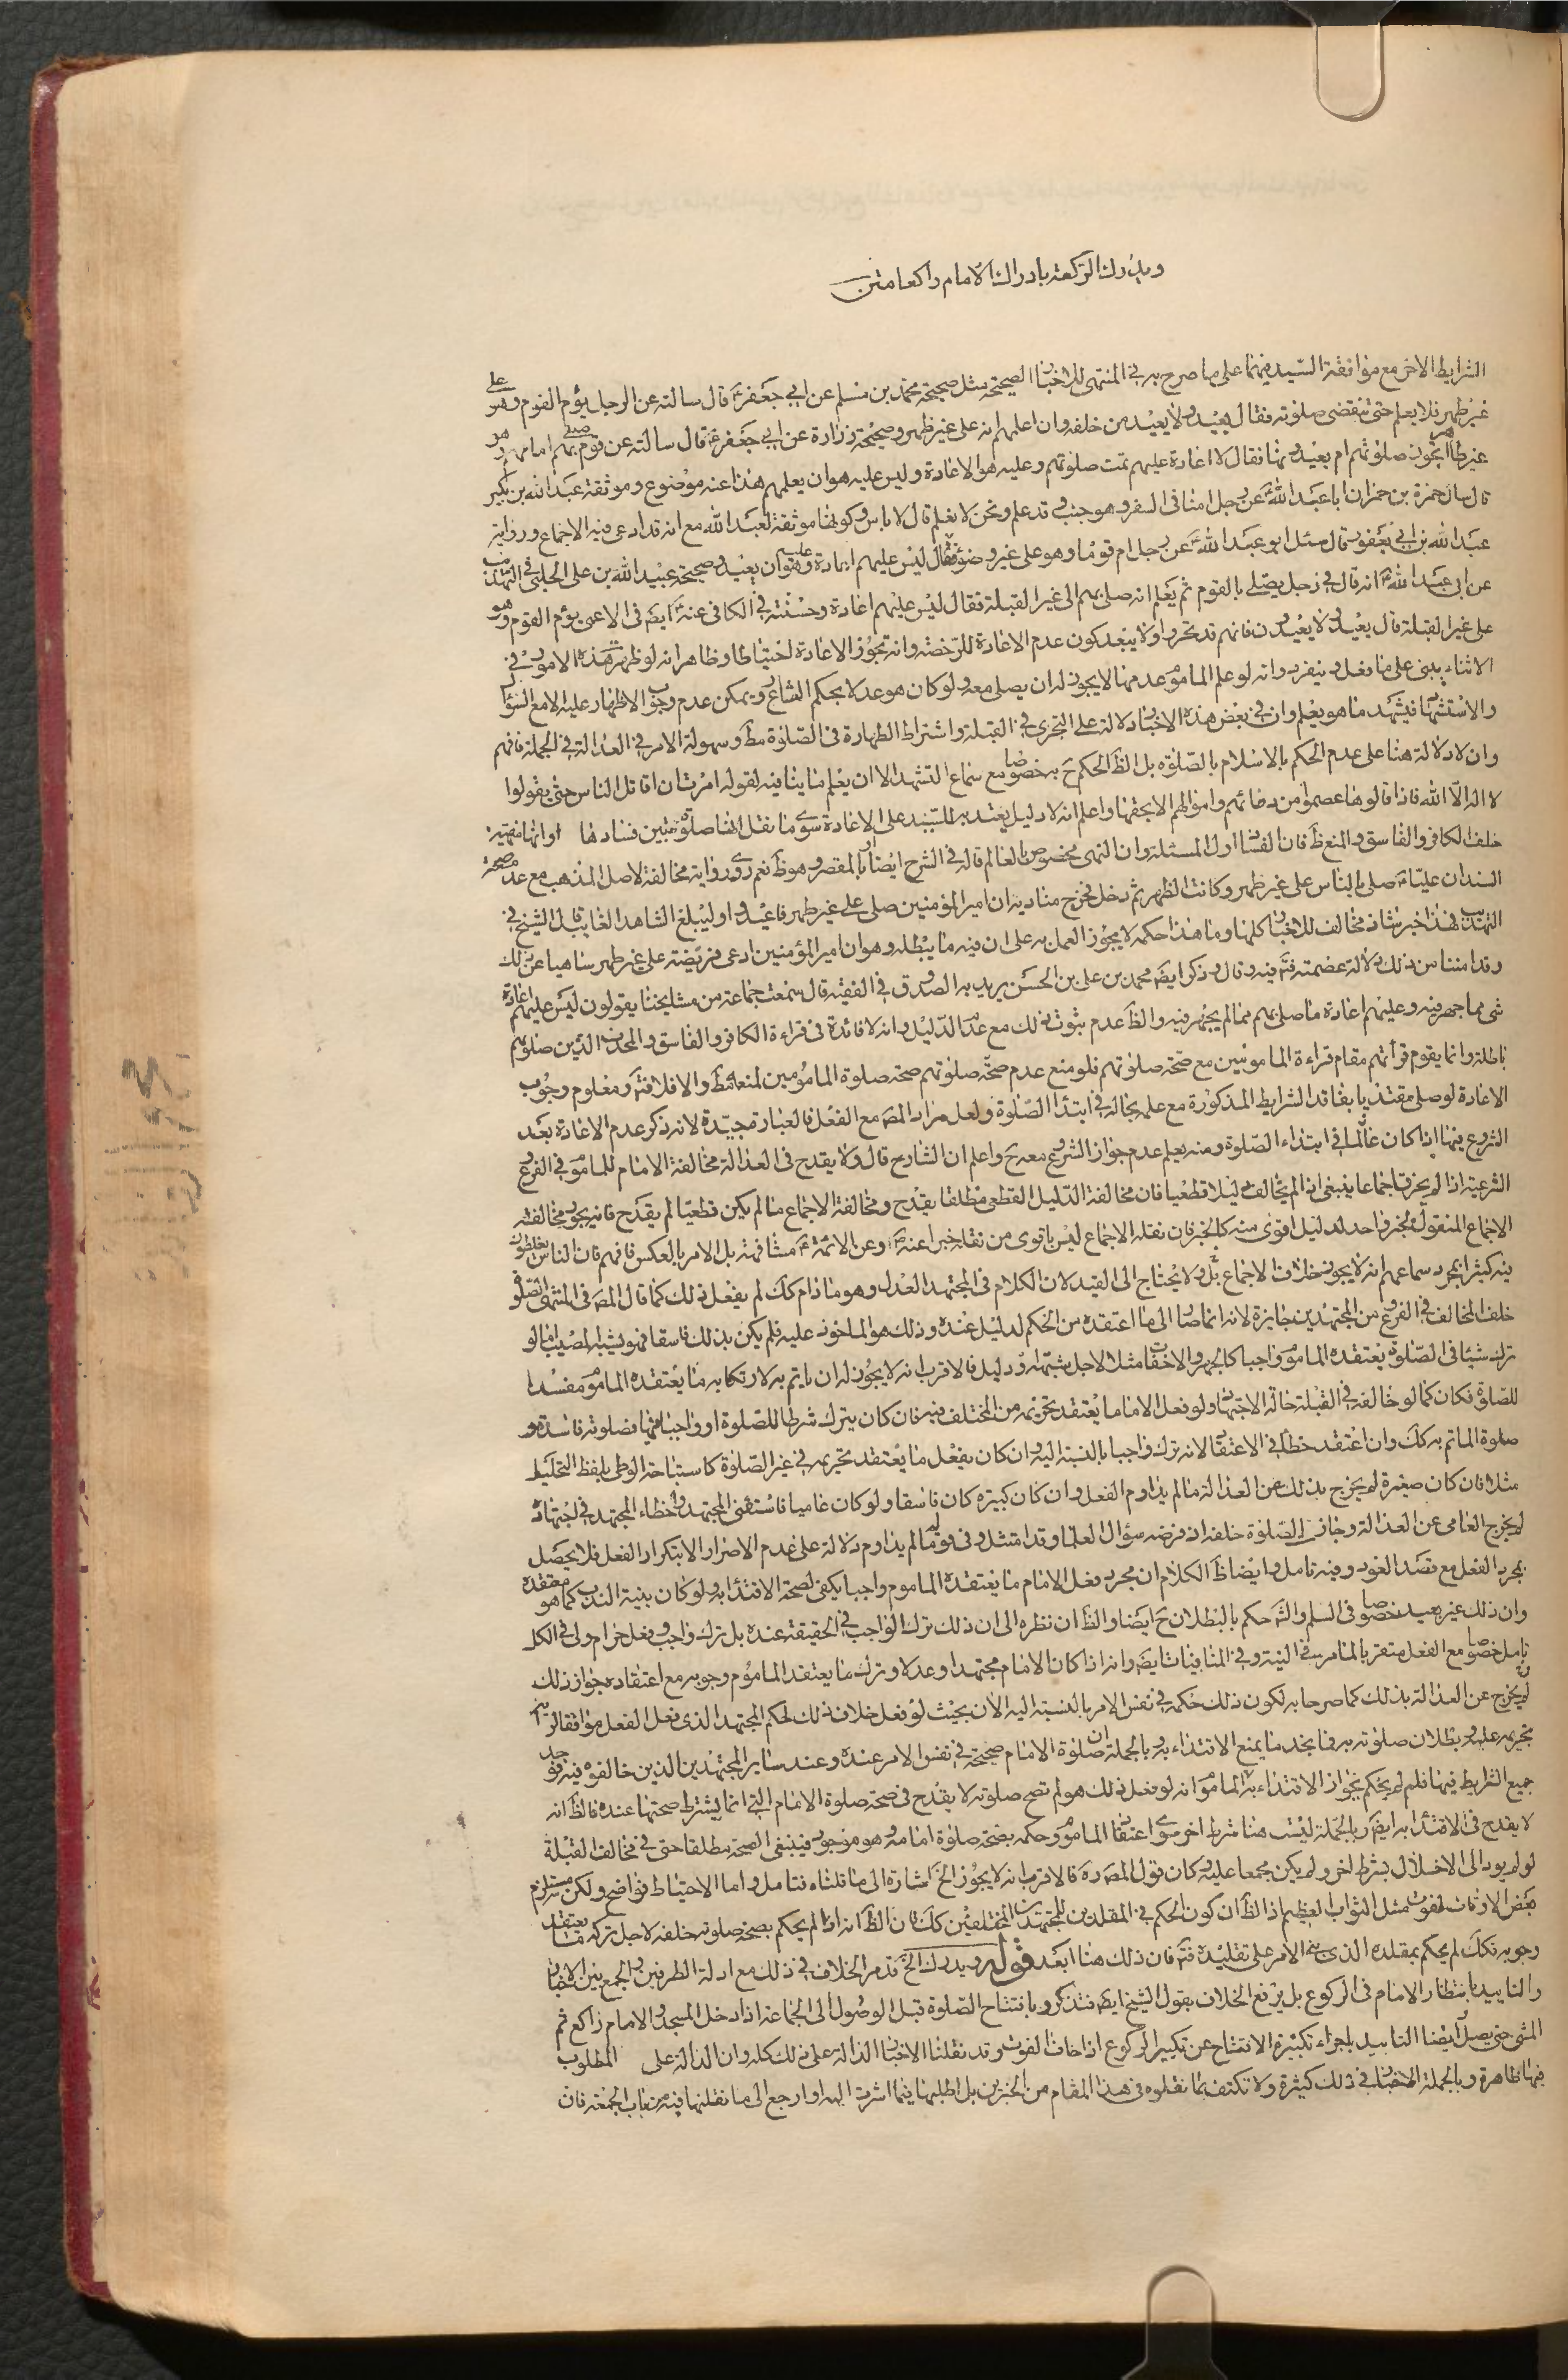 ويدرك الركعة بادراك الامام راكعا متن
الشرايط الاخر مع موافقة السيد فيهما على ما صرح به في المنتهى للاخبار الصحيحة مثل صحيحة محمد بن مسلم عن ابي جعفر ع قال سالته عن الرجل يؤم القوم وهو على
غير طهر فلا يعلم حتى تنقضى صلوته فقال يعيد ولا يعيد من خلفه وان اعلمهم انه على غير طهر وصحيحة زرارة عن ابي جعفر ع قال سالته عن قوم صلى بهم امامهم وهو
غير طاهر اتجوز صلوتهم ام يعيدونها فقال لا اعادة عليهم تمت صلوتهم وعليه هو الاعادة وليس عليه هو ان يعلمهم هذا عنه موضوع وموثقة عبد الله بن بكير
قال سال حمزة بن حمران ابا عبد الله ع عن رجل امنا في السفر وهو جنب وقد علم ونحن لا نعلم قال لا باس وكونها موثقة لعبد الله مع انه قد ادعى فيه الاجماع ورواية
عبد الله بن ابي يعفور قال سئل ابو عبد الله ع عن رجل ام قوما وهو على غير وضوء فقال ليس عليهم اعادة وعليه هو ان يعيد وصحيحة عبيد الله بن على الحلبي في التهذيب
عن ابي عبد الله ع انه قال في رجل يصلي بالقوم ثم يعلم انه صلى بهم الى غير القبلة فقال ليس عليهم اعادة وحسنته في الكافي عنه ع ايضا في الاعمى يؤم القوم وهو
على غير القبلة قال يعيد ولا يعيدون فانهم قد تحروا ولا يبعد كون عدم الاعادة للرخصة وانه تجوز الاعادة احتياطا وظاهر انه لو ظهر هذه الامور في
الاثناء يبنى على ما فعل وينفرد وانه لو علم الماموم عدمها لا يجوز له ان يصلى معه ولو كان هو عدلا بحكم الشارع ويمكن عدم وجوب الاظهار عليه الا مع السؤال
والاستشهاد فيشهد ما هو يعلم وان في بعض هذه الاخبار دلالة على التحرى في القبلة واشتراط الطهارة في الصلوة مط وسهولة الامر في العدالة في الجملة فافهم
وان لا دلالة هنا على عدم الحكم بالاسلام بالصلوة بل الظ الحكم ح به خصوصا مع سماع التشهد الا ان يعلم ما ينافيه لقوله امرت ان اقاتل الناس حتى يقولوا
لا اله الا الله فاذا قالوها عصموا من دمائهم واموالهم الا بحقها واعلم انه لا دليل يعتد به للسيد على الاعادة سوى ما نقل انها صلوة تبين فسادها او انها منهية
خلف الكافر والفاسق والمنع ظ فان الفساد اول المسئلة وان النهى مخصوص بالعالم قاله في الشرح ايضا بالمقصر وهو ظ نعم روى رواية مخالفة لاصل المذهب مع عدم صحة
السند ان عليا ع صلى بالناس على غير طهر وكانت الظهر ثم دخل فخرج مناديه ان امير المؤمنين صلى على غير طهر فاعيدوا وليبلغ الشاهد الغايب قال الشيخ في
التهذيب فهذا خبر شاذ مخالف للاخبار كلها وما هذا حكمه لا يجوز العمل به على ان فيه ما يبطله وهو ان امير المؤمنين ادى فريضة على غير طهر ساهيا عن ذلك
وقد امننا من ذلك دلالة عصمته فيه وقال وذكر ايضا محمد بن على بن الحسن يريد به الصدوق في الفقيه قال سمعت جماعة من مشايخنا يقولون ليس عليهم اعادة
شى مما جهر فيه وعليهم اعادة ما صلى بهم مما لم يجهر فيه والظ عدم ثبوت ذلك مع عدم الدليل وانه لا فائدة في قراءة الكافر والفاسق والمحدث الذين صلوتهم
باطلة وانما يقوم قرأتهم مقام قراءة المامومين مع صحة صلوتهم فلو منع عدم صحة صلوتهم صحة صلوة المامومين لمنعه مط والا فلا فتم ومعلوم وجوب
الاعادة لو صلى مقتديا بفاقد الشرايط المذكورة مع علمه بحاله في ابتداء الصلوة ولعل مراد المص مع الفعل فالعبارة جيدة لانه ذكر عدم الاعادة بعد
الشروع فيها اذا كان عالما في ابتداء الصلوة ومنه يعلم عدم جواز الشروع معه ح واعلم ان الشارح قال ولا يقدح في العدالة مخالفة الامام للماموم في الفروع
الشرعية اذا لم يخرق اجماعا ينبغى اذا لم يخالف دليلا قطعيا فان مخالفة الدليل القطعى مطلقا يقدح ومخالفة الاجماع ما لم يكن قطعيا لم يقدح فانه يجوز مخالفة
الاجماع المنقول بخبر واحد لدليل اقوى منه كالخبر فان نقله الاجماع ليس باقوى من نقله خبرا عنه ص وعن الائمة ع مشافهة بل الامر بالعكس فافهم فان الناس يغلطون
فيه كثيرا بمجرد سماعهم انه لا يجوز خلاف الاجماع بل ولا يحتاج الى القيد لان الكلام في المجتهد العدل وهو ما دام كك لم يفعل ذلك كما قال المص في المنتهى الصلوة
خلف المخالف في الفروع من المجتهدين جايزة لانه انما صار الى ما اعتقده من الحكم لدليل عنده وذلك هو الماخوذ عليه فلم يكن بذلك فاسقا فهو يشبه المصيب اما لو
ترك شيئا في الصلوة يعتقده الماموم واجبا كالجهر والاخفات مثلا لاجل شبهة او دليل فالاقرب انه لا يجوز له ان ياتم به لارتكابه ما يعتقده الماموم مفسدا
للصلوة فكان كما لو خالفه في القبلة حالة الاجتهاد ولو فعل الامام ما يعتقد تحريمه من المختلف فيه فان كان يترك شرطا للصلوة او واجبا فيها فصلوته فاسدة و
صلوة الماتم به كك وان اعتقد خطأ في الاعتقاد لانه ترك واجبا بالنسبة اليه وان كان يفعل ما يعتقد تحريمه في غير الصلوة كاستباحة الوطى بلفظ التحليل
مثلا فان كان صغيرة لم يخرج بذلك عن العدالة ما لم يداوم الفعل وان كان كبيرة كان فاسقا ولو كان عاميا فاستفتى المجتهد واخطاء المجتهد في اجتهاده
لم يخرج العامى عن العدالة وجاز الصلوة خلفه اذ فرضه سؤال العلماء وقد امتثل وفي قوله ما لم يداوم دلالة على عدم الاصرار الا بتكرار الفعل فلا يحصل
بمجرد الفعل مع قصد العود وفيه تامل وايضا ظ الكلام ان مجرد فعل الامام ما يعتقده الماموم واجبا يكفى لصحة الاقتداء به ولو كان بنية الندب كما هو معتقده
وان ذلك غير بعيد خصوصا في السلم والشه حكم بالبطلان ح ايضا والظ ان نظره الى ان ذلك ترك الواجب في الحقيقة عنده بل ترك واجب وفعل حرام ولى في الكل
تامل خصوصا مع الفعل متقربا لما مر في النية وفي المنافيات ايضا وانه اذا كان الامام مجتهدا وعدلا وترك ما يعتقد الماموم وجوبه مع اعتقاده جواز ذلك
لم يخرج عن العدالة بذلك كما صرحا به لكون ذلك حكمه في نفس الامر بالنسبة اليه الان بحيث لو فعل خلاف ذلك لحكم المجتهد الذى فعل الفعل موافقا لرايه
بتحريمه عليه وبطلان صلوته به فما يخد ما يمنع الاقتداء به وبالجملة ان صلوة الامام صحيحة في نفس الامر عنده وعند ساير المجتهدين الذين خالفوه فيه فوجد
جميع الشرايط فيها فلم لم يحكم بجواز الاقتداء به للماموم انه لو فعل ذلك هو لم تصح صلوته لا يقدح في صحة صلوة الامام التي انما يشترط صحتها عنده فالظ انه
لا يقدح في الاقتداء به ايضا وبالجملة ليست هنا شرط اخر سوى اعتقاد الماموم وحكمه بصحة صلوة امامه وهو موجود فينبغى الصحة مطلقا حتى في مخالف القبلة
لو لم يود الى الاخلال بشرط اخر ولم يكن مجمعا عليه وكان قول المص ره فالاقرب انه لا يجوز الخ اشارة الى ما قلناه فتامل واما الاحتياط فواضح ولكن مستلزم
بعض الاوقات لفوت مثل الثواب العظيم اذ الظ ان كون الحكم في المقلدين للمجتهدين المختلفين كك فان الظ انه اذا لم يحكم بصحة صلوته خلفه لاجل تركه ما يعتقد
وجوبه فكك لم يحكم بمقلده الذى بنى الامر على تقليده فتم فان ذلك هنا ابعد قوله ويدرك الخ قد مر الخلاف في ذلك مع ادلة الطرفين والجمع بين الاخبار
والتاييد بانتظار الامام في الركوع بل يرتفع الخلاف بقول الشيخ ايضا فتذكر وبافتتاح الصلوة قبل الوصول الى الجماعة اذا دخل المسجد والامام راكع ثم
المشى حتى يصل ايضا التاييد باجزاء تكبيرة الافتتاح عن تكبير الركوع اذا خاف الفوت وقد نقلنا الاخبار الدالة على ذلك كله وان الدالة على المطلوب
فيها ظاهرة وبالجملة الاخبار في ذلك كثيرة ولا تكتف بما نقلوه في هذا المقام من الخبرين بل اطلبها فيما اشرت اليه او ارجع الى ما نقلنها فيه من باب الجمعة فان